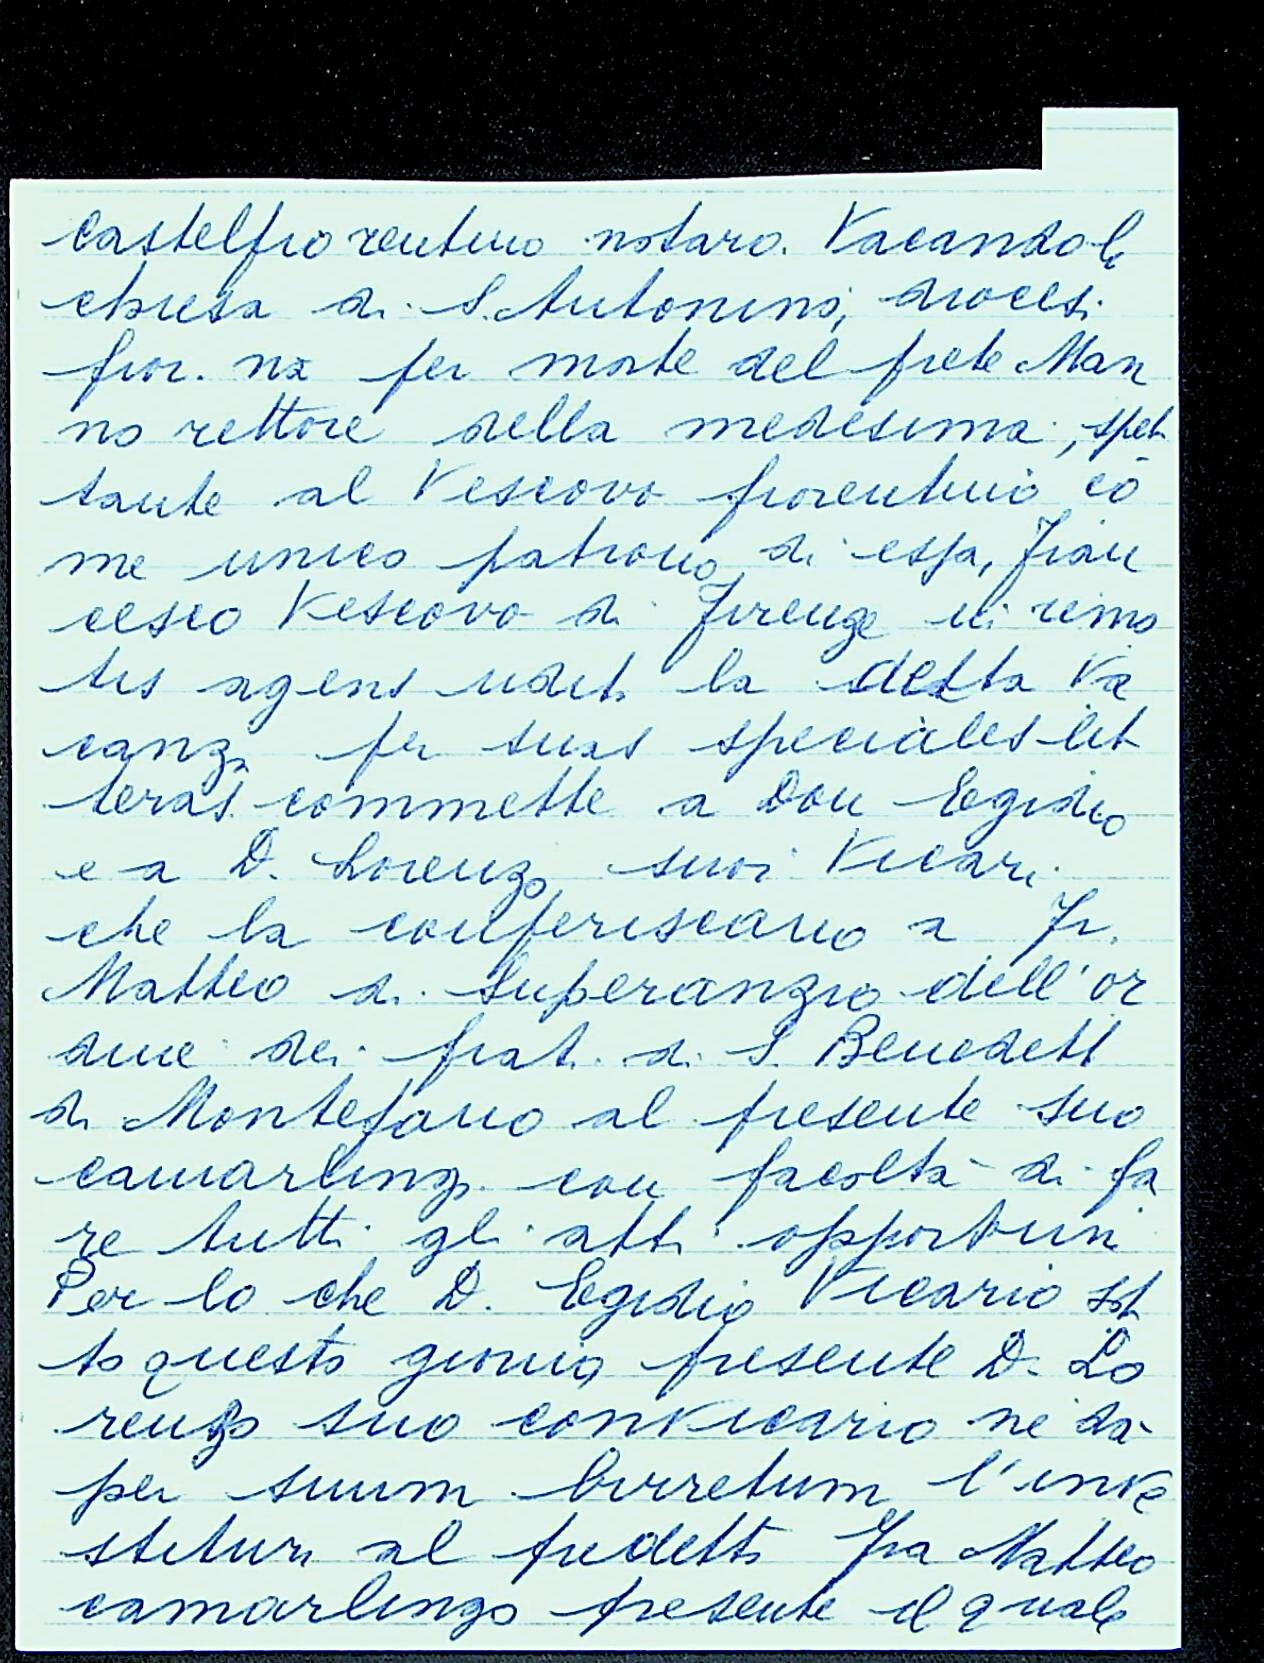 castelfiorentino notaro. Vacando la
chiesa di S. Antonino, diocesi
fior.na per morte del prete Man
no rettore della medesima, spet
tante al Vescovo fiorentino co
me unico patrono di essa, Fran
cesco Vescovo di Firenze in remo
tis agens udita la detta Va
canza per suas speciales lit
teras commette a Don Egidio
e a D. Lorenzo suoi Vicari
che la conferiscano a Fr.
Matteo di Superanzio dell'or
dine dei frati di S. Benedett
di Montefano al presente suo
camarlingo con facoltà di fa
re tutti gli atti opportuni
Per lo che D. Egidio Vicario sot
to questo giorno presente D. Lo
renzo suo convicario ne dà
per suum birretum l'inve
stitura al predetto Fra Matteo
camarlingo presente il quale